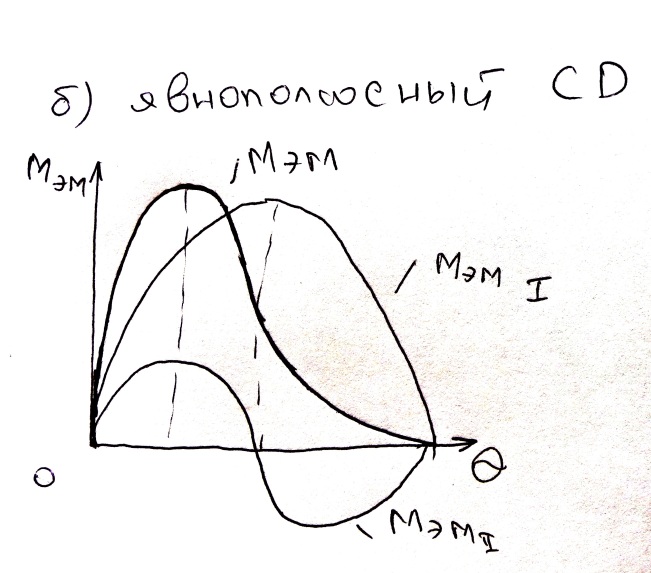 б) явнополюсный СD
Mэм
Mэм
Mэм I
0
Θ
Mэм II